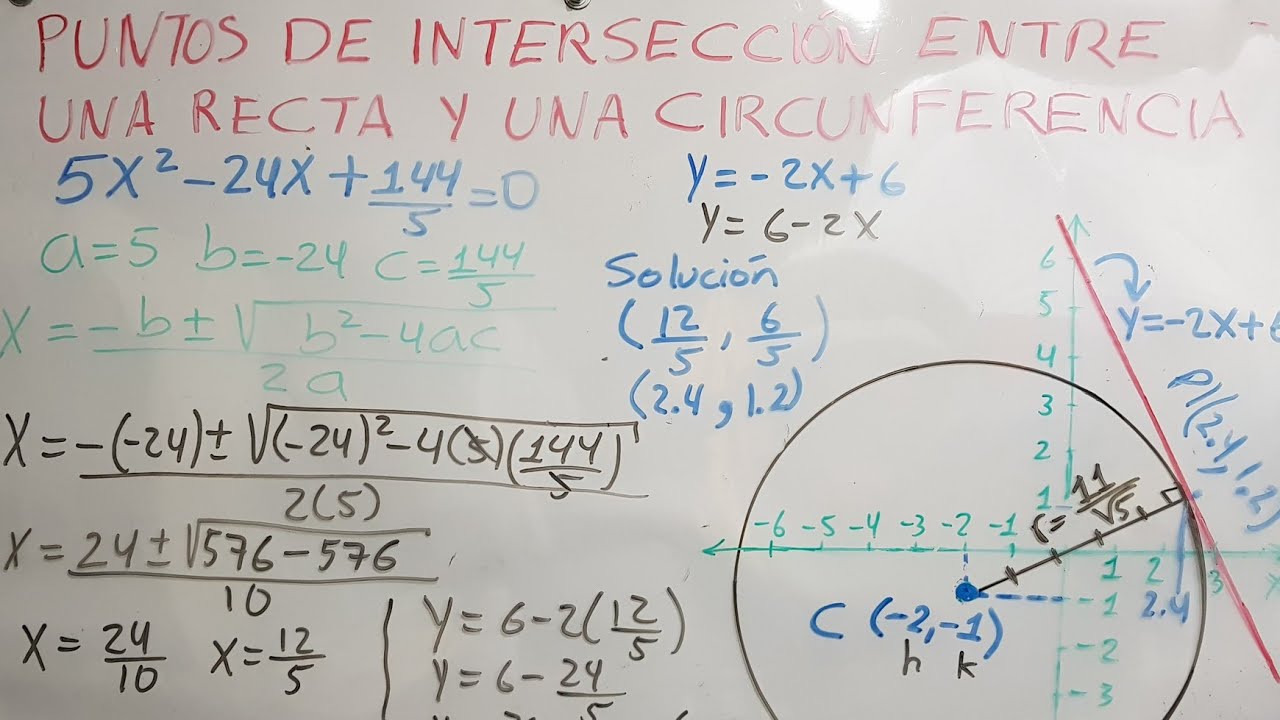 PUNTOS DE INTERSECCIÓN ENTRE
UNA RECTA Y UNA CIRCUNFERENCIA
5X² - 24X + 144/5 = 0
a = 5 b = -24 c = 144/5
X = -b ± √(b² - 4ac) / 2a
X = -(-24) ± √((-24)² - 4(5)(144/5)) / 2(5)
X = 24 ± √(576 - 576) / 10
X = 24/10 X = 12/5
Y = 6 - 2(12/5)
Y = 6 - 24/5
Y = -2X + 6
Y = 6 - 2X
Solución
(12/5, 6/5)
(2.4, 1.2)
6
5
4
3
2
1
Y = -2X + 6
P(2.4, 1.2)
r = 11/√5
-6 -5 -4 -3 -2 -1
1 2 3 X
2.4
-1
-2
-3
C (-2, -1)
h k